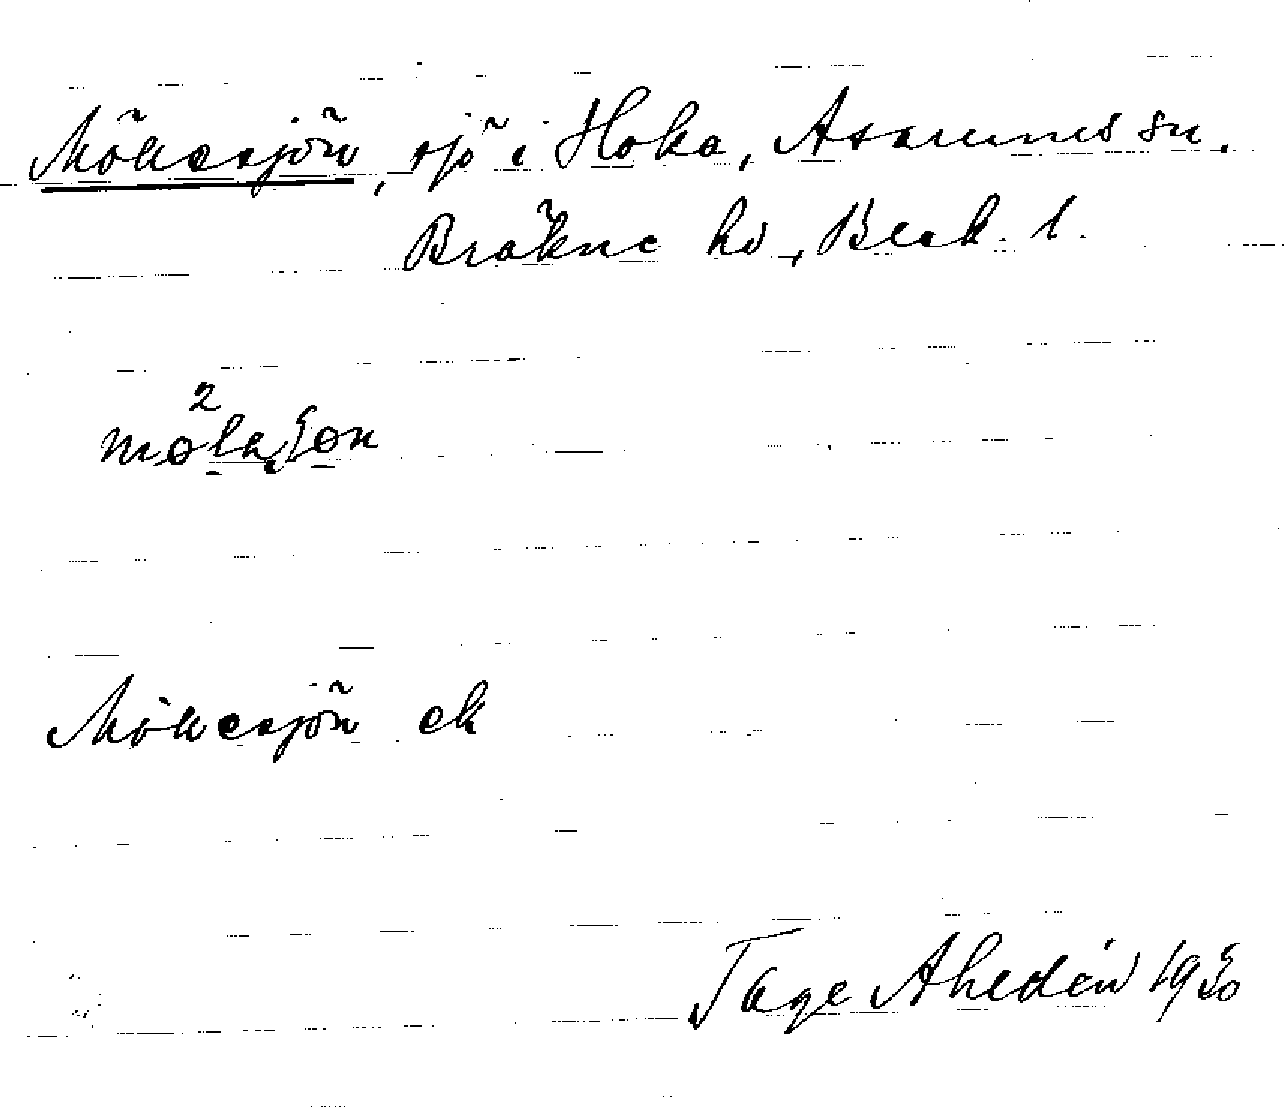 Möllesjön, sjö i Hoka, Asarums sn.
Bräkne hd, Blek. l.
2
möla ʃön
Möllesjön ek
Tage Ahldén 1930